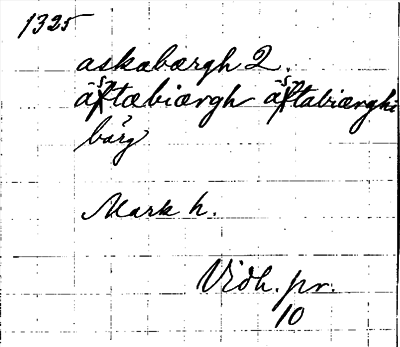 1325
askabærgh 2.
æstæbiærgh æstabiærghi
bärg
Mark h.
Vidh. pr.
10